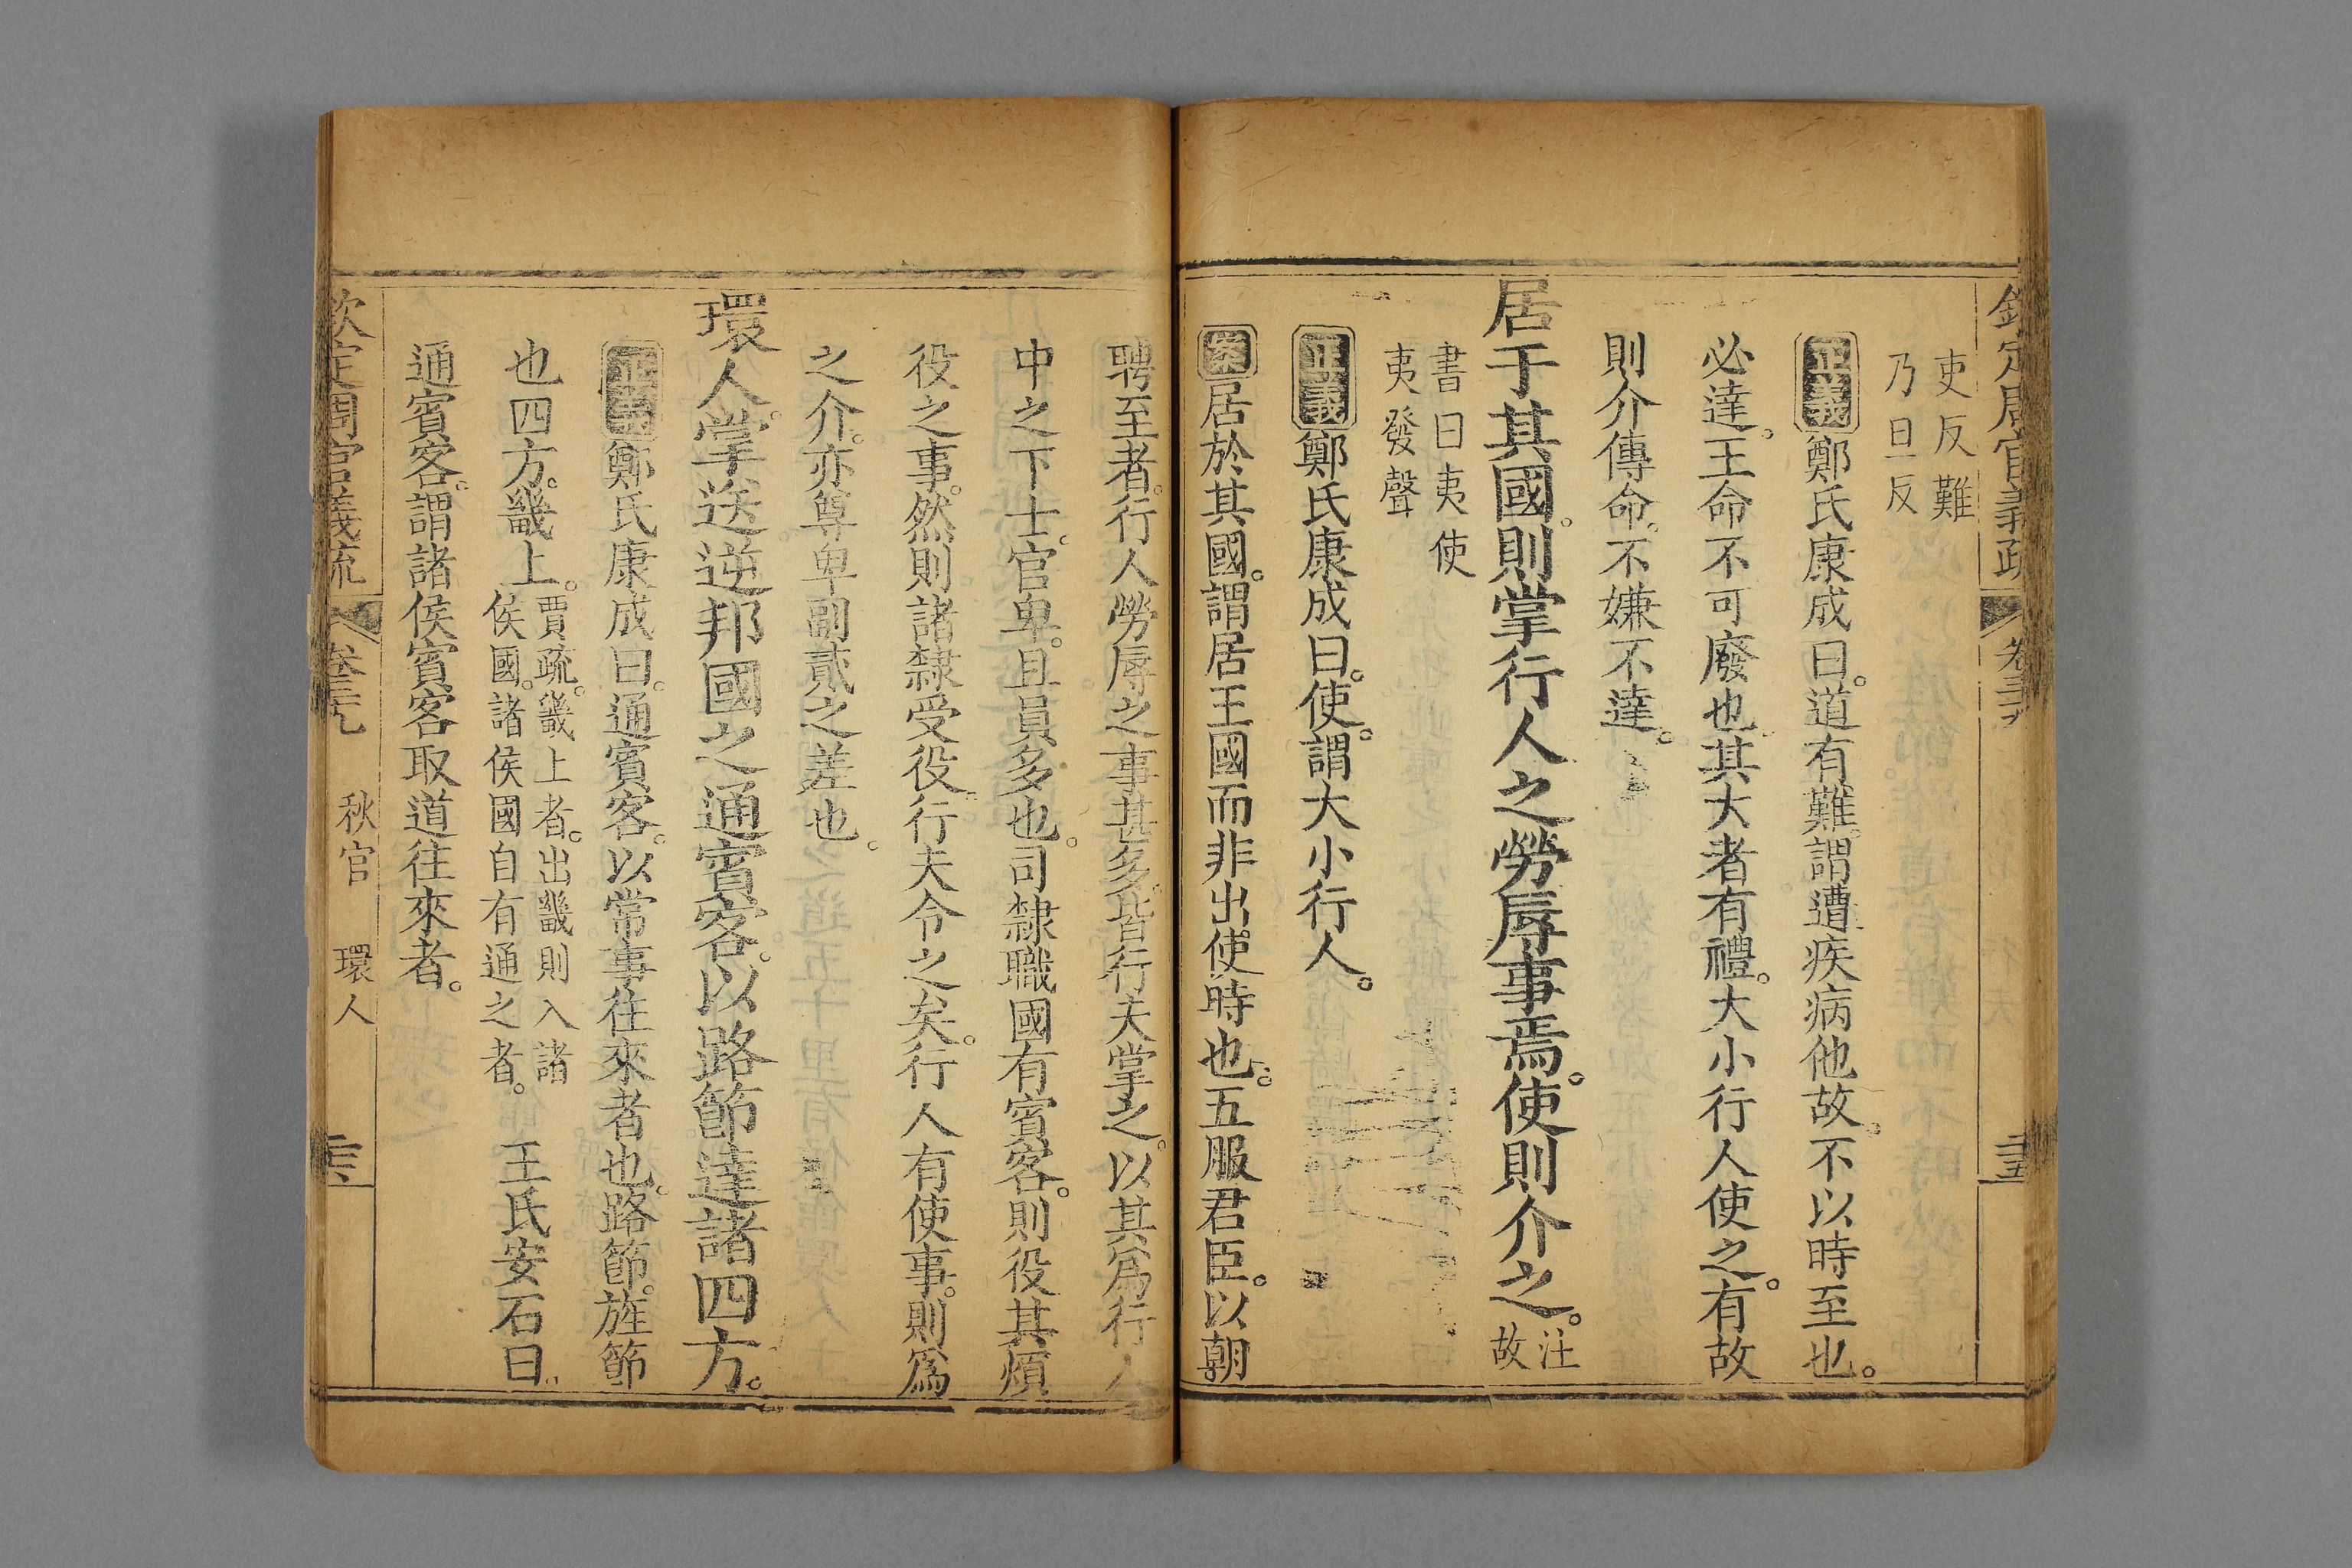 欽定周官義疏 卷三十九 三十五
吏反難
乃旦反
正義鄭氏康成曰。道有難。謂遭疾病他故。不以時至也。
必達。王命不可廢也。其大者有禮。大小行人使之。有故
則介傳命。不嫌不達。
居于其國。則掌行人之勞辱事焉。使則介之。注故
書曰夷使
夷發聲
正義鄭氏康成曰。使。謂大小行人。
案居於其國。謂居王國而非出使時也。五服君臣。以朝
聘至者。行人勞辱之事甚多。皆行夫掌之。以其爲行人
中之下士。官卑。且員多也。司隸職國有賓客。則役其煩
役之事。然則諸隸受役。行夫令之矣。行人有使事。則爲
之介。亦尊卑副貳之差也。
環人。掌送逆邦國之通賓客。以路節達諸四方。
正義鄭氏康成曰。通賓客。以常事往來者也。路節。旌節
也。四方。畿上。賈疏。畿上者。出畿則入諸侯國。諸侯國自有通之者。 王氏安石曰。
通賓客。謂諸侯賓客取道往來者。
欽定周官義疏 卷三十九 秋官 環人 三十五